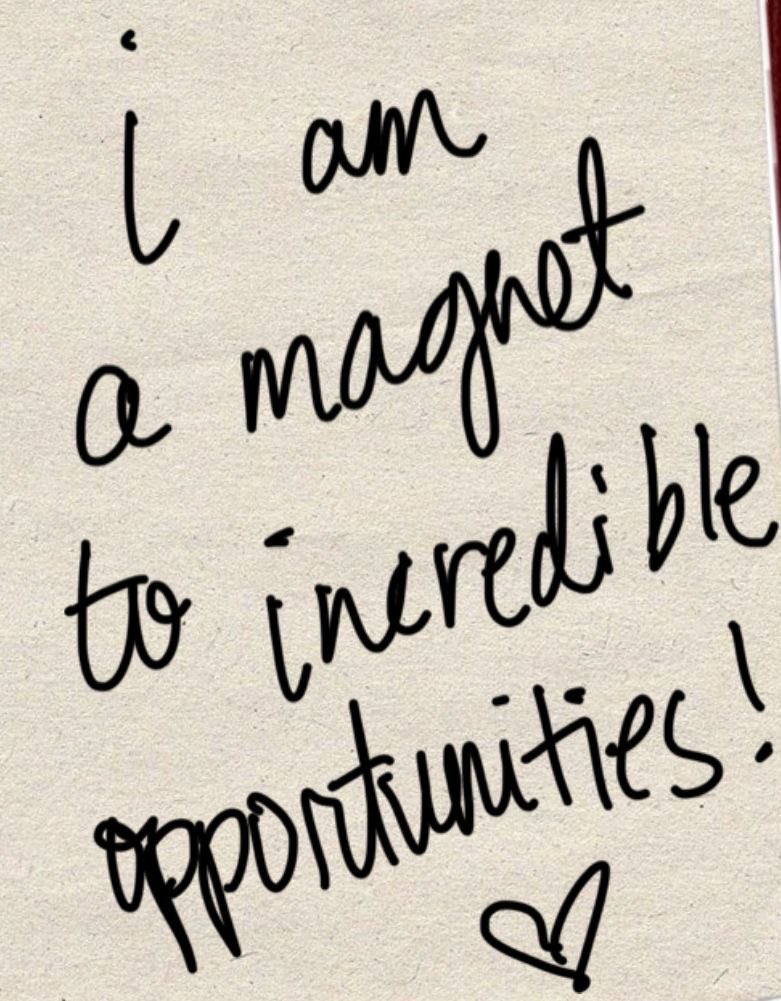 i am
a magnet
to incredible
opportunities!